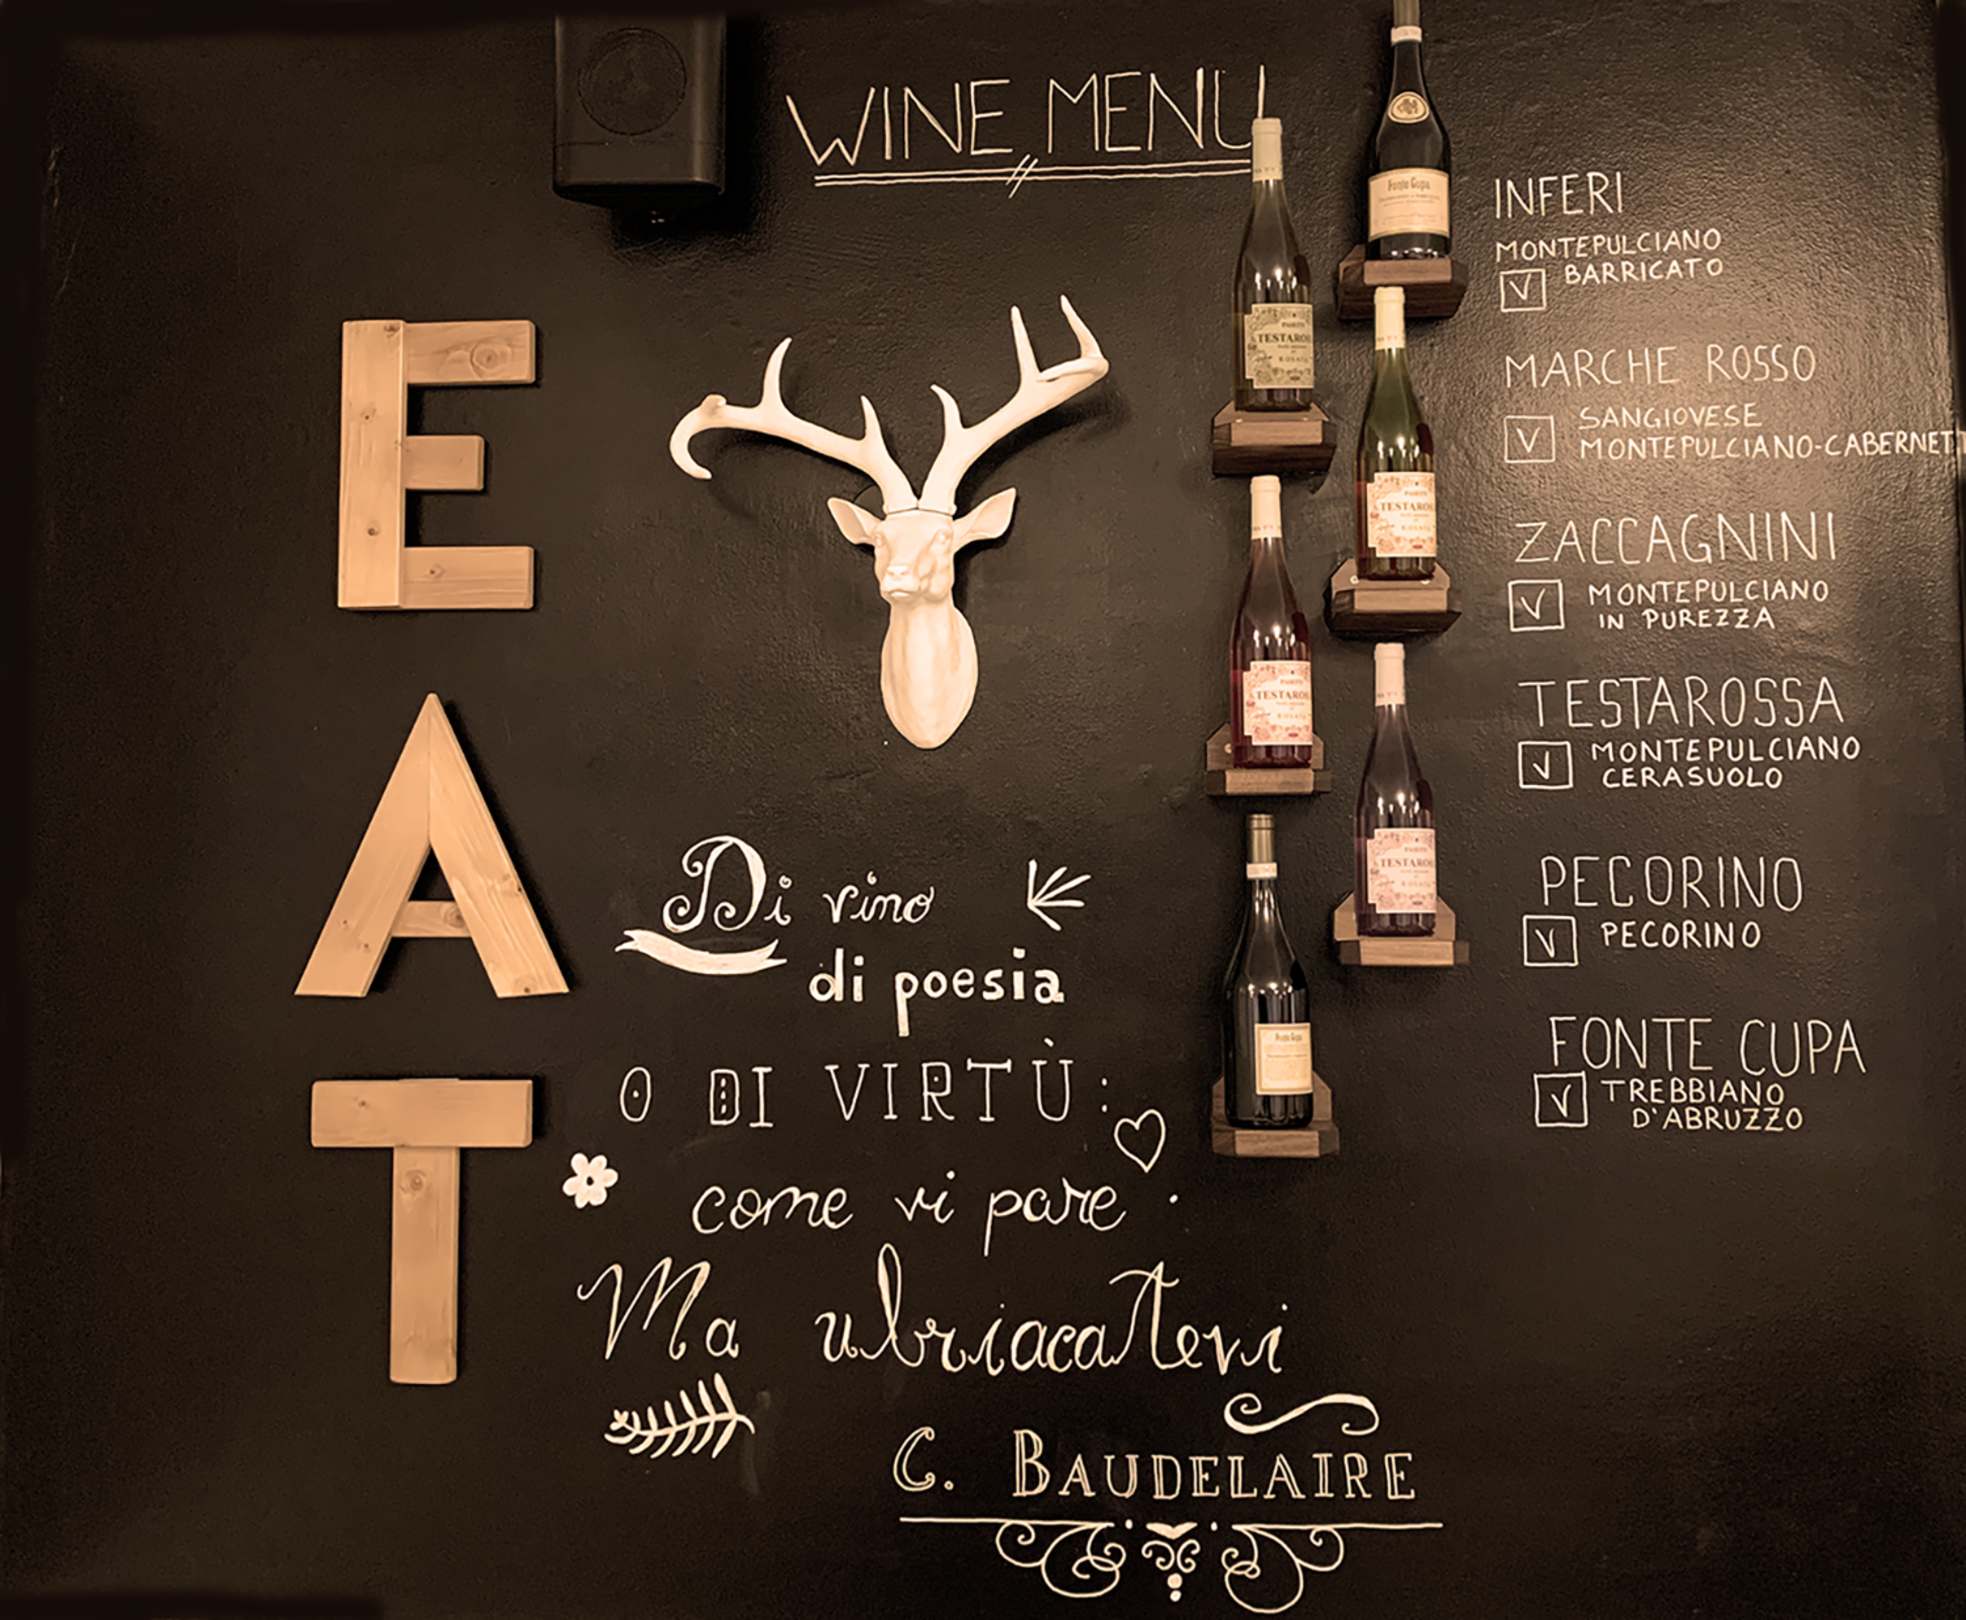 WINE MENU
EAT
INFERI
MONTEPULCIANO
BARRICATO
MARCHE ROSSO
SANGIOVESE
MONTEPULCIANO-CABERNET
ZACCAGNINI
MONTEPULCIANO
IN PUREZZA
TESTAROSSA
MONTEPULCIANO
CERASUOLO
PECORINO
PECORINO
FONTE CUPA
TREBBIANO
D'ABRUZZO
Di vino
di poesia
O DI VIRTÙ:
come vi pare.
Ma ubriacatevi
C. BAUDELAIRE
Fonte Cupa